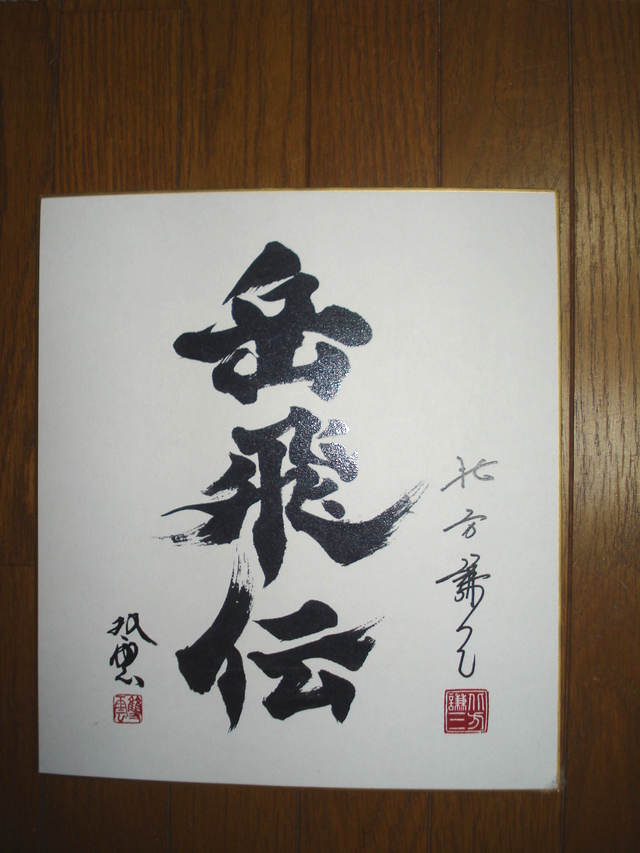 北方謙三
岳飛伝
北方謙三